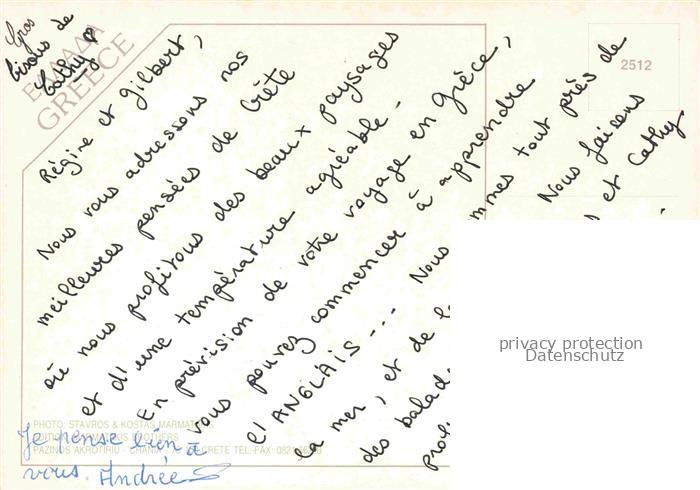 Gros
bisous de
Cathy
ΕΛΛΑΔΑ
GREECE
2512
Régine et Gilbert,
Nous vous adressons nos
meilleures pensées de Crète
où nous profitons des beaux paysages
et d'une température agréable.
En prévision de votre voyage en Grèce,
vous pouvez commencer à apprendre
l'ANGLAIS --- Nous sommes tout près de
la mer, et de Nous faisons
des balad et Cathy
prof
Je pense bien à
vous. Andrée
PHOTO: STAVROS & KOSTAS MARMAT
BROTHERS
PAZINOS AKROTIRIU - CRETE TEL.-FAX: 0821
privacy protection
Datenschutz